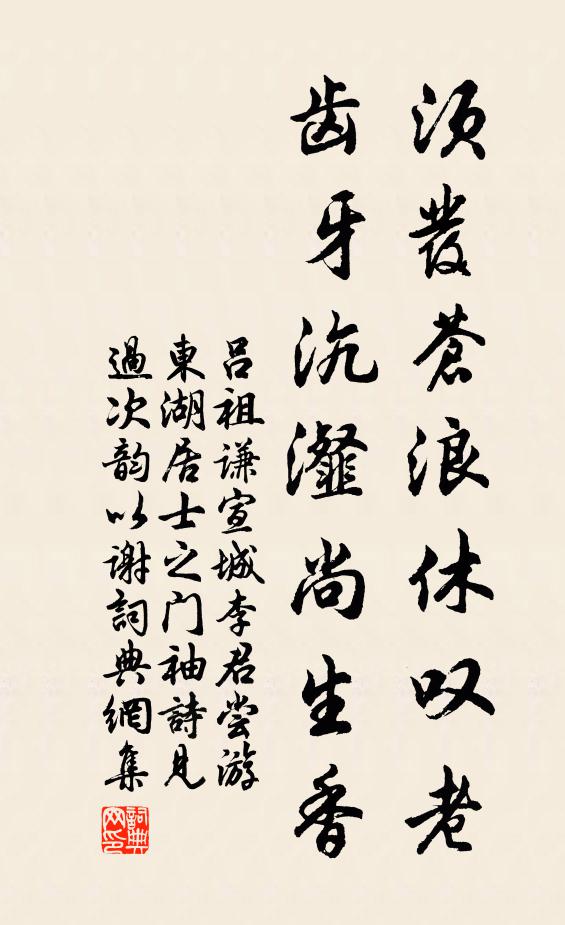 须發蒼浪休叹老
齿牙沆瀣尚生香
吕祖谦宣城李君尝游
東湖居士之门袖詩見
過次韵以谢詞典網集
詞典网印